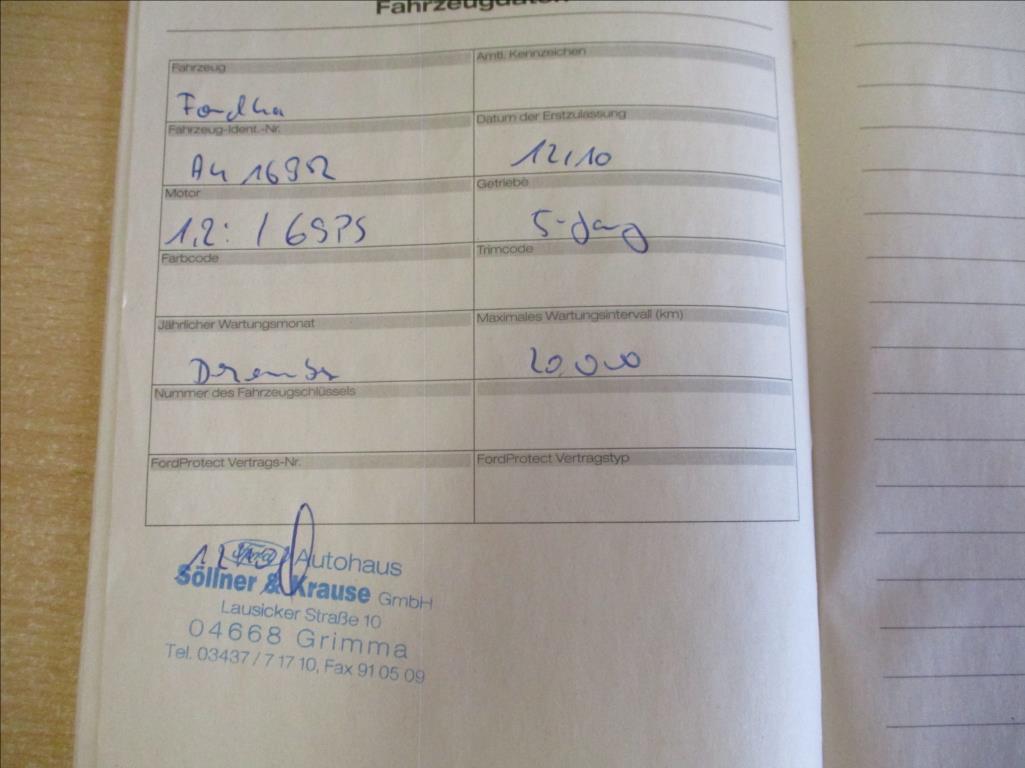 Fahrzeugdaten
Fahrzeug
Amtl. Kennzeichen
Ford Ka
Fahrzeug-Ident.-Nr.
Datum der Erstzulassung
12/10
Motor
Getriebe
1,2: / 69PS
5-Gang
Farbcode
Trimcode
Jährlicher Wartungsmonat
Maximales Wartungsintervall (km)
Dezember
20.000
Nummer des Fahrzeugschlüssels
FordProtect Vertrags-Nr.
FordProtect Vertragstyp
Ford Autohaus
Söllner & Krause GmbH
Lausicker Straße 10
04668 Grimma
Tel. 03437 / 7 17 10, Fax 91 05 09